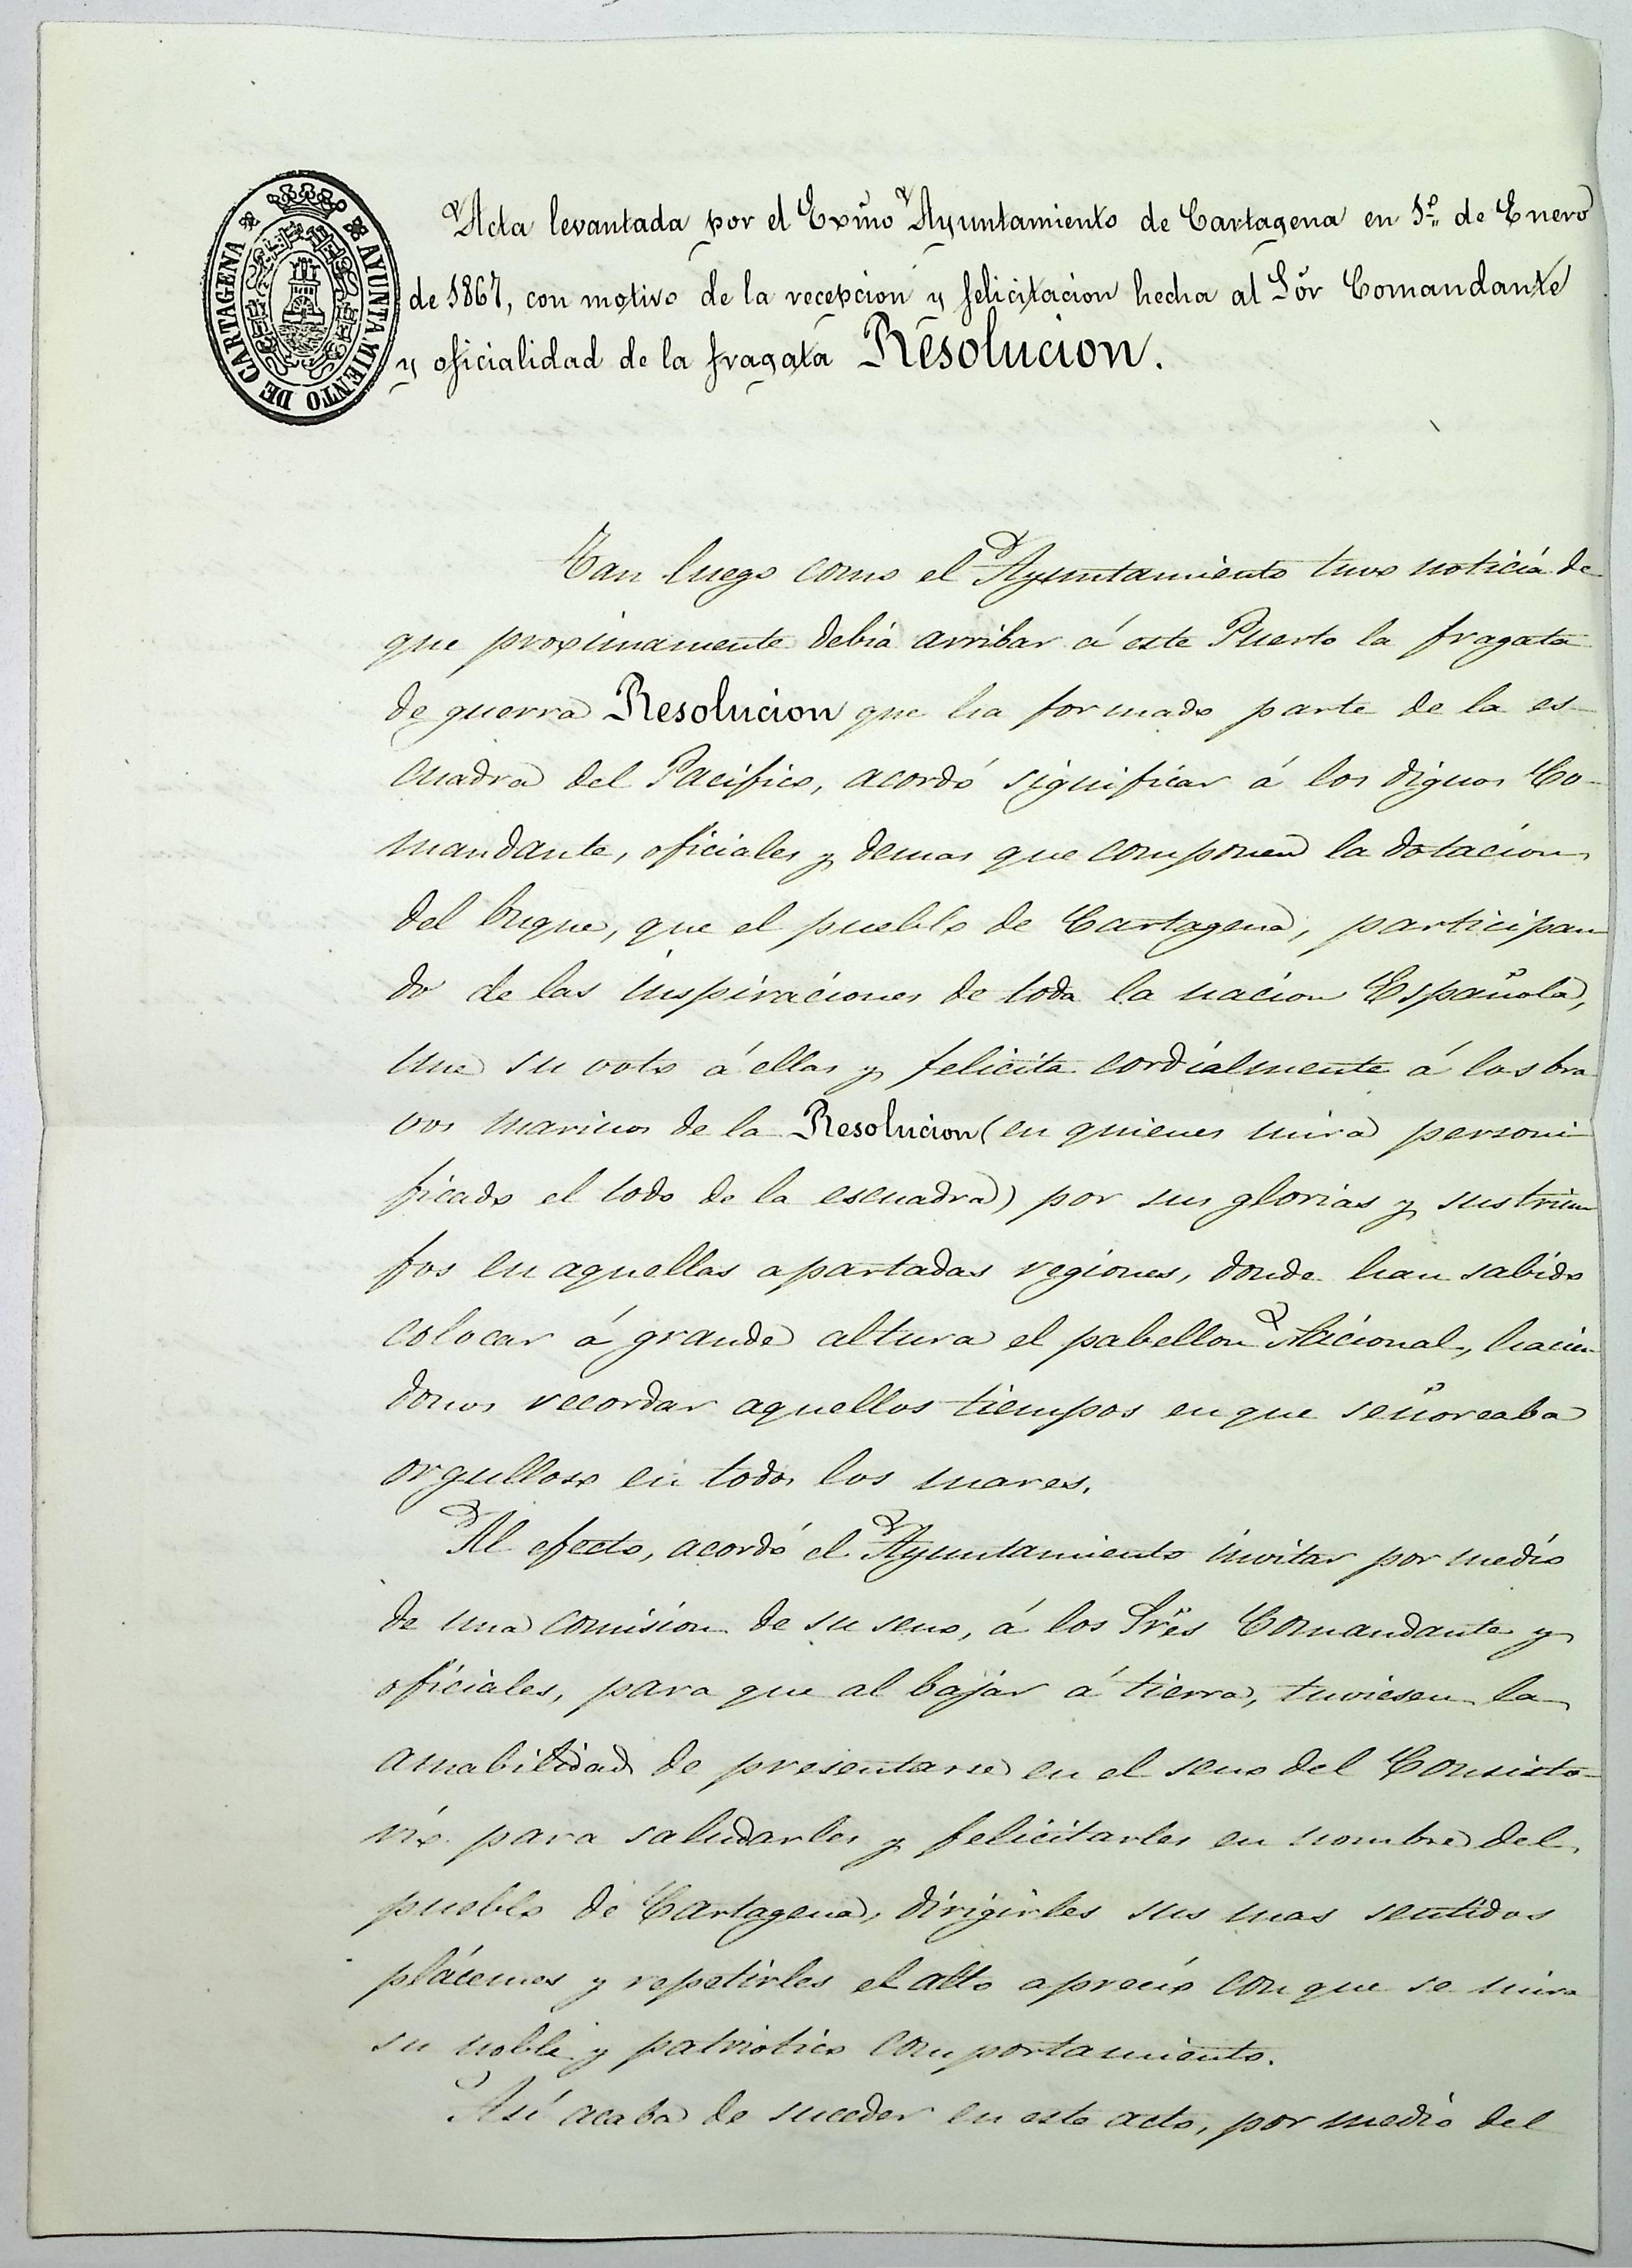 AYUNTAMIENTO DE CARTAGENA
Acta levantada por el Exm̃o Ayuntamiento de Cartagena en 1º de Enero
de 1867, con motivo de la recepcion y felicitacion hecha al Sõr Comandante
y oficialidad de la fragata Resolucion.
Tan luego como el Ayuntamiento tuvo noticia de
que proximamente debia arribar á este Puerto la fragata
de guerra Resolucion que ha formado parte de la es-
cuadra del Pacifico, acordó significar á los dignos Co-
mandante, oficiales y demas que componen la dotacion
del buque, que el pueblo de Cartagena, participan
do de las inspiraciones de toda la nacion Española,
une su voto á ellas y felicita cordialmente á los bra
vos marinos de la Resolucion (en quienes mira personi-
ficado el todo de la escuadra) por sus glorias y sus triun
fos en aquellas apartadas regiones, donde han sabido
colocar á grande altura el pabellon Nacional, hacien
donos recordar aquellos tiempos en que señoreaba
orgulloso en todos los mares.
Al efecto, acordó el Ayuntamiento invitar por medio
de una comision de su seno, á los Sres Comandante y
oficiales, para que al bajar á tierra, tuviesen la
amabilidad de presentarse en el seno del Consisto-
rio para saludarles y felicitarles en nombre del
pueblo de Cartagena, dirigirles sus mas sentidos
plácemes y repetirles el alto aprecio con que se mira
su noble y patriotico comportamiento.
Así acaba de suceder en este acto, por medio del